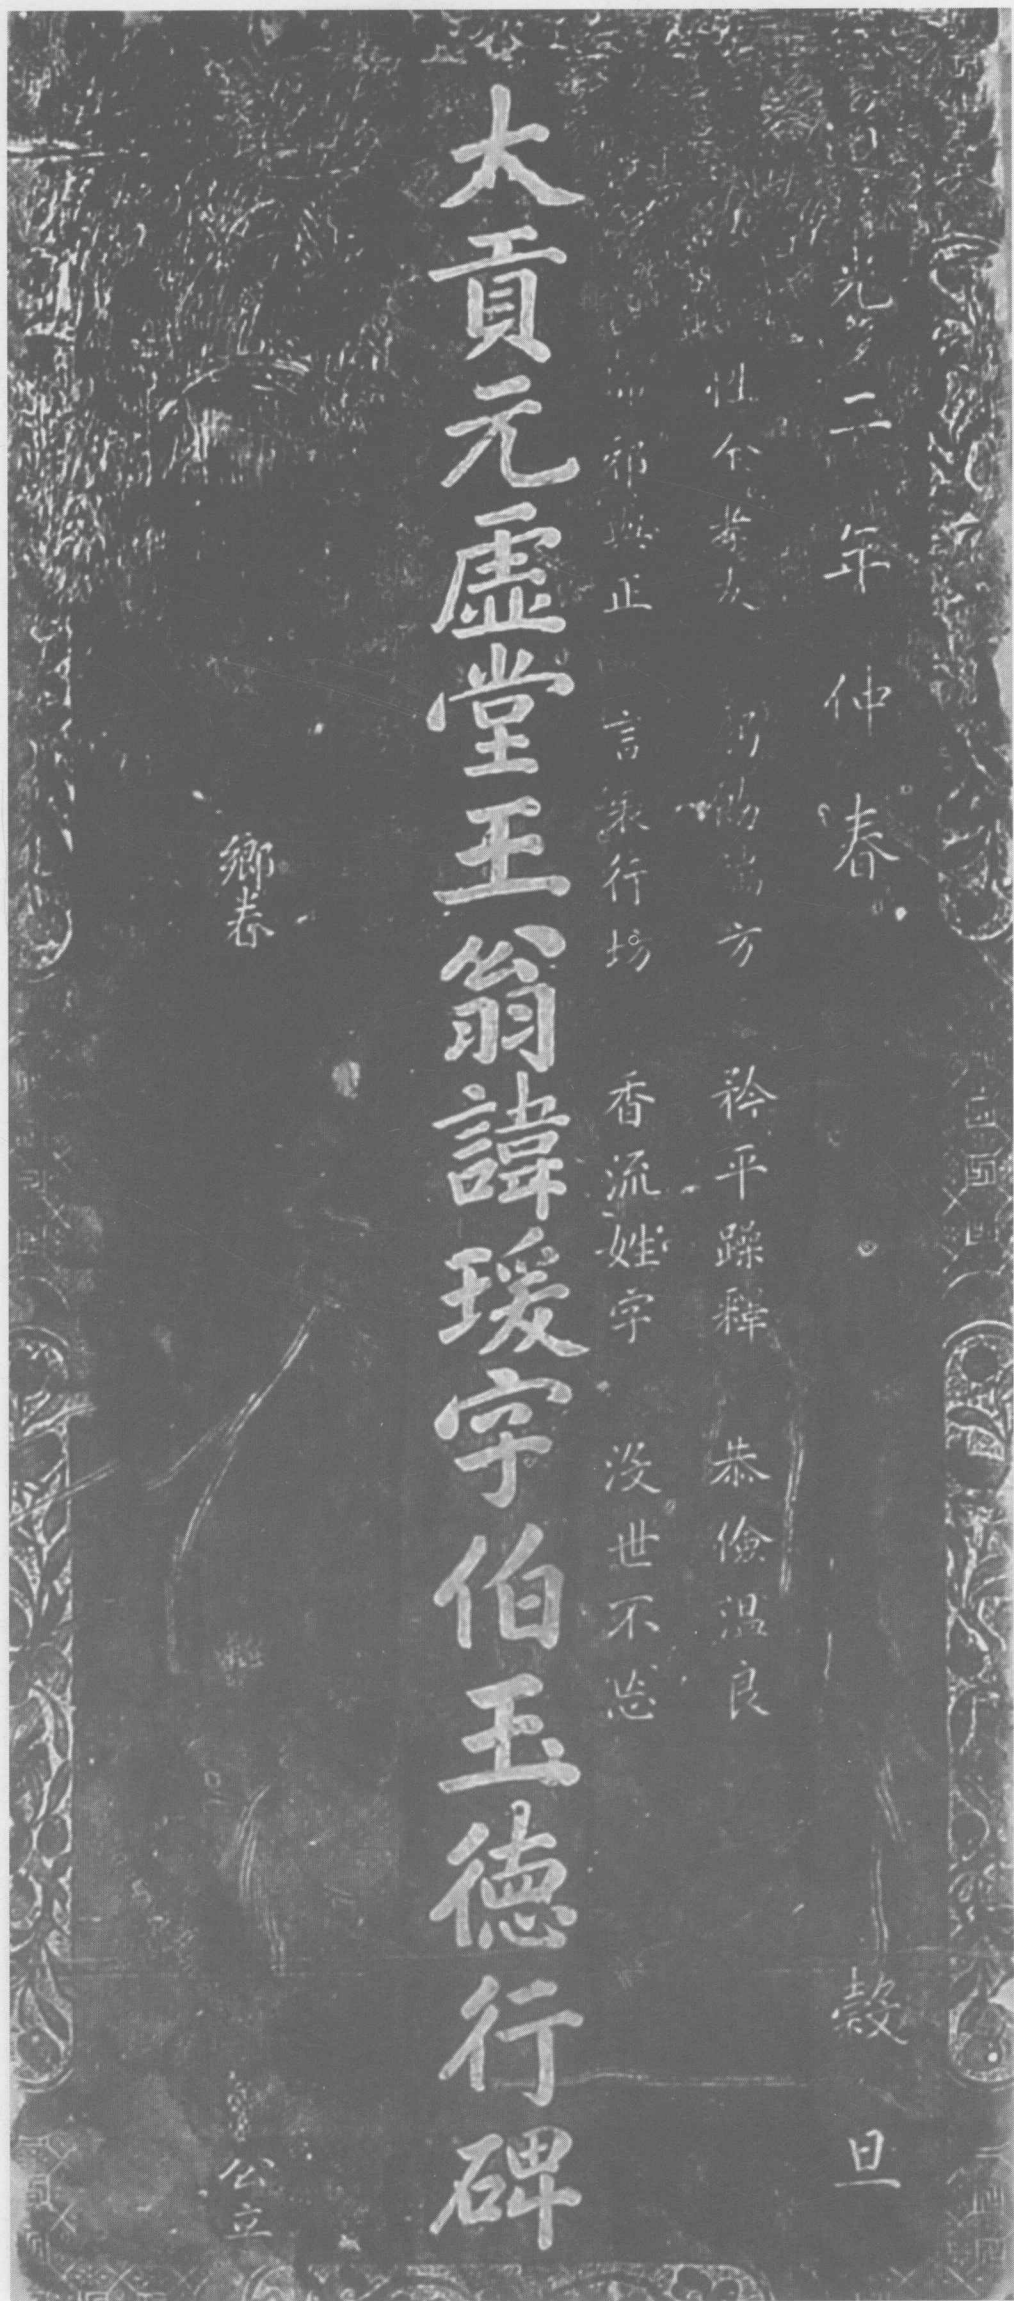 光二年仲春穀旦
性 孝友 方 矜平躁釋 恭儉溫良
邪與正 言表行坊 香流姓字 沒世不忘
大貢元虛堂王翁諱瑗字伯玉德行碑
鄉耆 公立